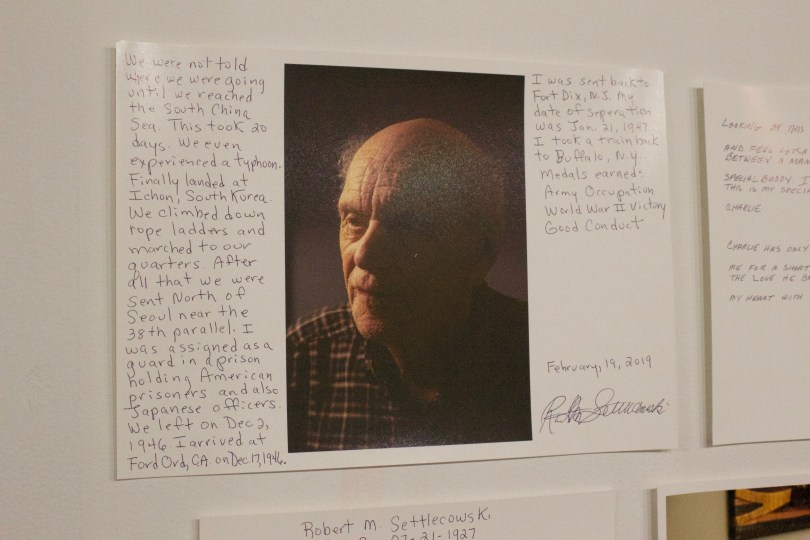 We were not told
where we were going
until we reached
the South China
Sea. This took 20
days. We even
experienced a typhoon.
Finally landed at
Ichon, South Korea.
We climbed down
rope ladders and
marched to our
quarters. After
all that we were
sent North of
Seoul near the
38th parallel. I
was assigned as a
guard in a prison
holding American
prisoners and also
Japanese officers.
We left on Dec 2,
1946. I arrived at
Ford Ord, CA. on Dec. 17, 1946.
I was sent back to
Fort Dix, N.J. My
date of seperation
was Jan. 21, 1947.
I took a train back
to Buffalo, N.Y.
Medals earned:
Army Occupation
World War II Victory
Good Conduct
February, 19, 2019
Robert M. Settlecowski
07-21-1927
LOOKING AT THIS
AND FEEL
BETWEEN A MAN
SPECIAL BUDDY. I
THIS IS MY SPECIAL
CHARLIE
CHARLIE HAS ONLY
ME FOR A SHORT
THE LOVE HE
MY HEART WITH